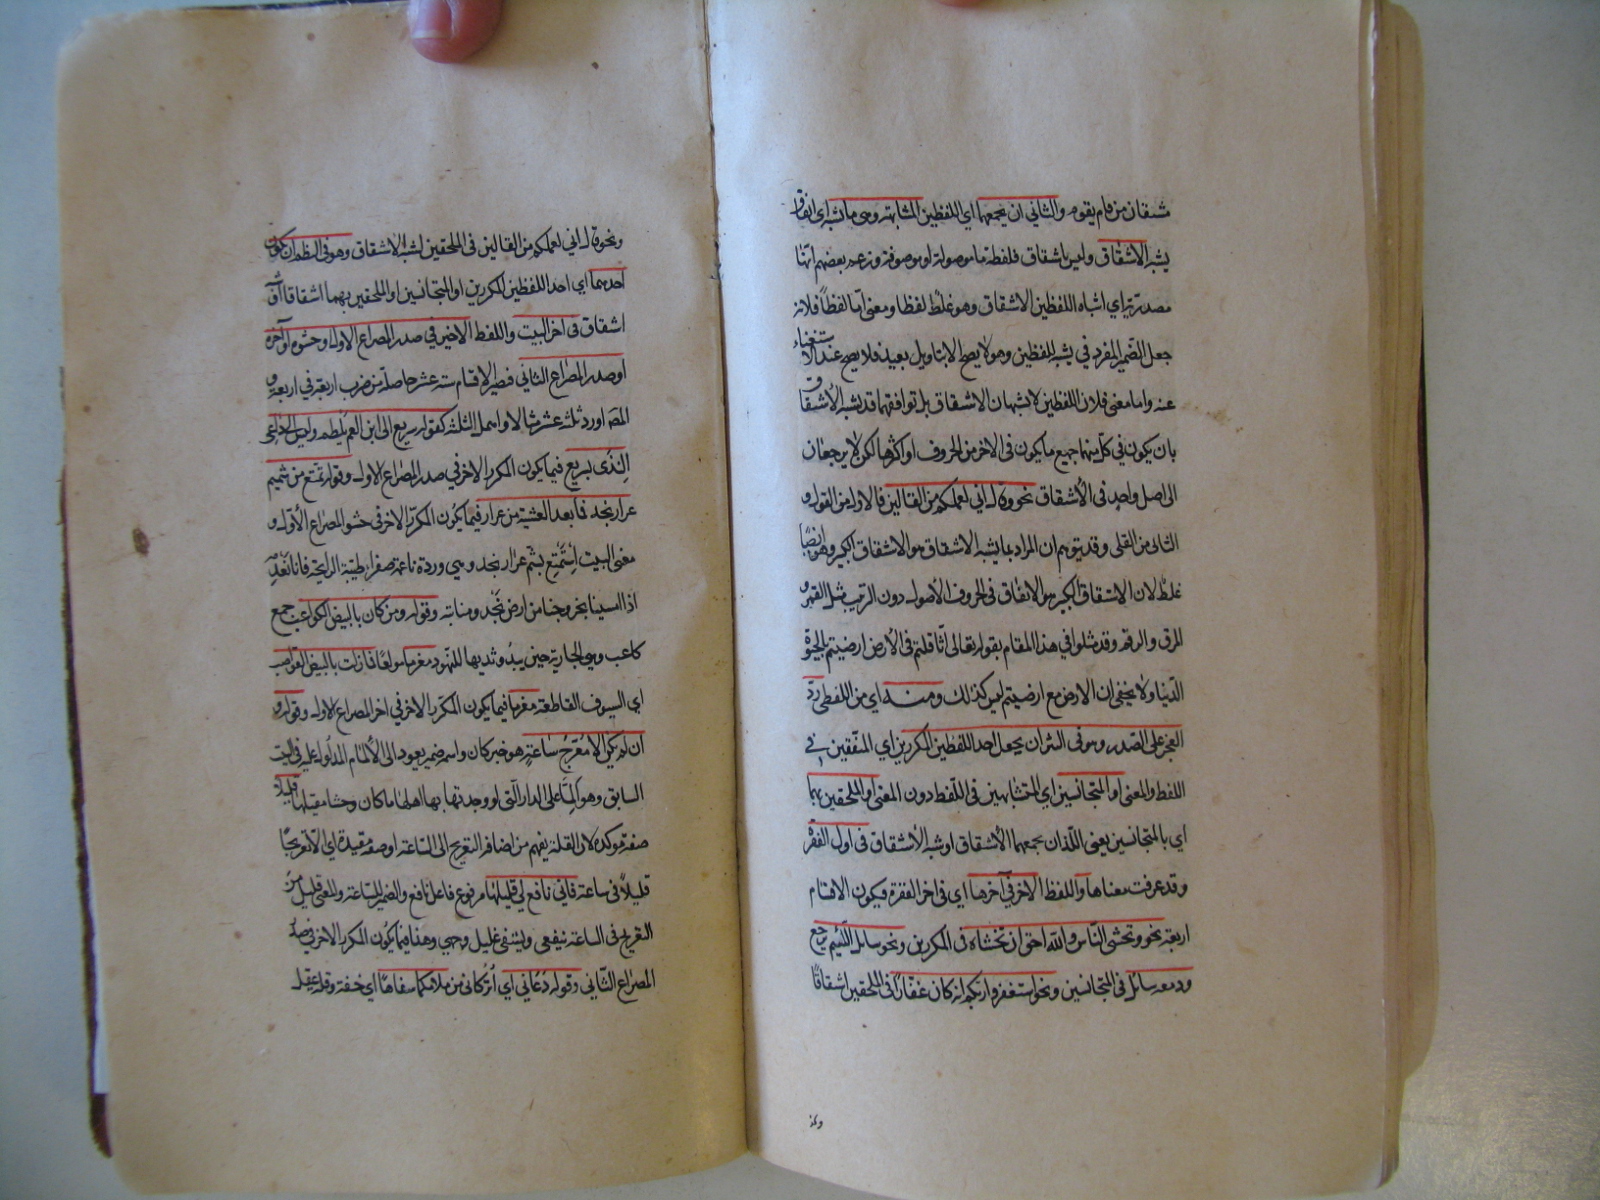 مشتقان من قام يقوم والثاني ان يجمعهما اي اللفظين المشابهة وهي ما يشبه اي اتفاق
يشبه الاشتقاق وليس باشتقاق فلفظة ما موصولة او موصوفة وزعم بعضهم انها
مصدرية اي اشباه اللفظين الاشتقاق وهو غلط لفظا ومعنى اما لفظاً فلانه
جعل الضمير المفرد في يشبه للفظين وهو لا يصح الا بتاويل بعيد فلا يصح عند الاستغناء
عنه واما معنى فلان اللفظين لا يشبهان الاشتقاق بل توافقهما قد يشبه الاشتقاق
بان يكون في كل منهما جميع ما يكون في الاخر من الحروف او اكثرها لكن لا يرجعان
الى اصل واحد في الاشتقاق نحو قال اني لعملكم من القالين فالاول من القول و
الثاني من القلى وقد يتوهم ان المراد بما يشبه الاشتقاق هو الاشتقاق الكبير وهو ايضًا
غلط لان الاشتقاق الكبير هو الاتفاق في الحروف الاصول دون الترتيب مثل القمر و
المرق والرقم وقد مثلوا في هذا المقام بقوله تعالى اثاقلتم في الارض ارضيتم بالحيوة
الدنيا ولا يخفى ان الارض مع ارضيتم ليس كذلك ومنه اي من اللفظي ردّ
العجز على الصدر وهو في النثر ان يجعل احد اللفظين المكررين اي المتفقين في
اللفظ والمعنى او المتجانسين اي المتشابهين في اللفظ دون المعنى او الملحقين بهما
اي بالمتجانسين يعني اللذان يجمعهما الاشتقاق او شبه الاشتقاق في اول الفقرة
وقد عرفت معناها واللفظ الاخر في آخرها اي في اخر الفقرة فيكون الاقسام
اربعة نحو وتخشى الناس والله احق ان تخشاه في المكررين ونحو سائل اللئيم يرجع
ودمعه سائل في المتجانسين ونحو استغفروا ربكم انه كان غفّاراً في الملحقين اشتقاقًا
ونحو قال اني لعملكم من القالين في الملحقين لشبه الاشتقاق وهو في النظم ان يكون
احدهما اي احد اللفظين المكررين او المتجانسين او الملحقين بهما اشتقاقا او شبه
اشتقاق في اخر البيت واللفظ الاخير في صدر المصراع الاول او حشوه او آخره
او صدر المصراع الثاني فيصير الاقسام ستة عشر حاصلة من ضرب اربعة في اربعة و
المص اورد ثلثة عشر مثالا واهمل الثلثة كقوله سريع الى ابن العم يلطم وليس الى داعي
النِّدى بسريع فيما يكون المكرر الاخر في صدر المصراع الاول وقوله تمتع من شميم
عرار نجد فما بعد العشية من عرار فيما يكون المكرر الاخر في حشو المصراع الاول و
معنى البيت اِستَمتِع بشم عرار نجد وهي وردة ناعمة صفراء طيبة الرايحة فانا نعدمه
اذا امسينا بخروجنا من ارض نجد ومنابته وقوله ومن كان بالبيض الكواعب جمع
كاعب وهي الجارية حين يبدُو ثديها للنهود مغرما مولعًا فما زلت بالبيض القواضب
اي السيوف القاطعة مغرما فيما يكون المكرر الاخر في اخر المصراع الاول وقوله و
ان لم يكن الا مُعرّجُ ساعةٍ هو خبر كان واسمه ضمير يعود الى الالمام المدلول عليه في البيت
السابق وهو اَلِمّا على الدار التي لو وجدتها بها اهلها ما كان وحشا مقيلها قليلا
صفة مؤكدة لان القلة يفهم من اضافة التعريج الى الساعة او صفة مقيدة اي الا تعريجًا
قليلاً في ساعة فاني نافع لي قليلها مرفوع فاعل نافع والضمير للساعة والمعنى قليل من
التعريج في الساعة ينفعني ويشفي غليل وجدي وهذا فيما يكون المكرر الاخر في صدر
المصراع الثاني وقوله دعاني اي اُتركاني من ملامكما سفاهًا اي خفة وقلة عقل